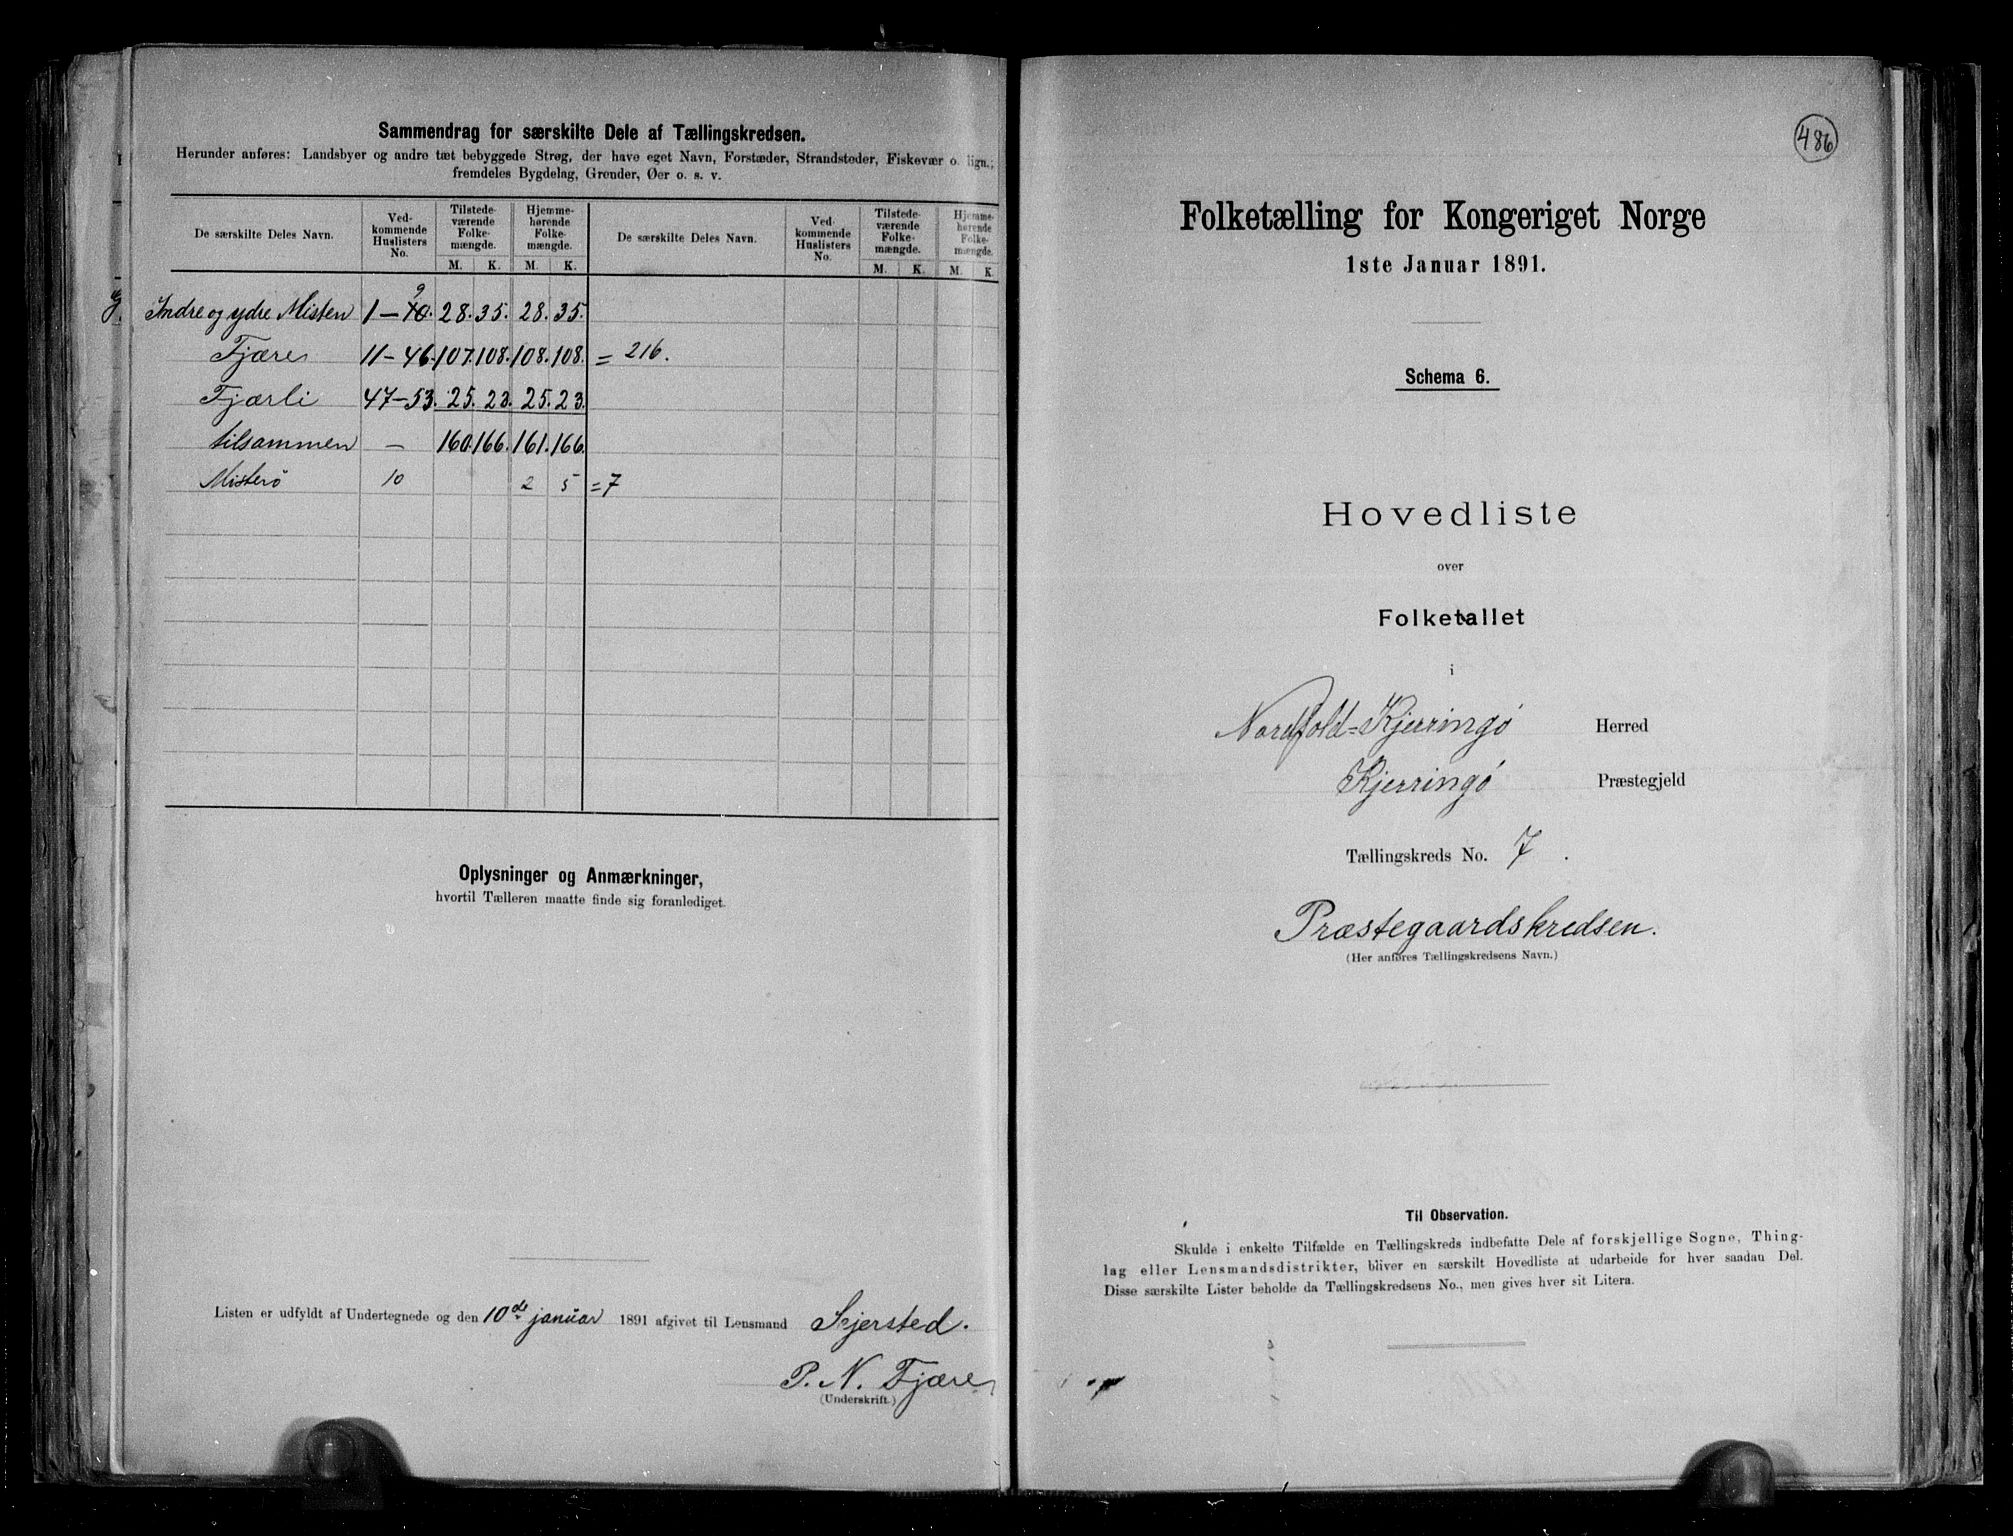 Sammendrag for særskilte Dele af Tællingskredsen.
Herunder anføres: Landsbyer og andre tæt bebyggede Strøg, der have eget Navn, Forstæder, Strandsteder, Fiskevær o. lign.;
fremdeles Bygdelag, Grender, Øer o. s. v.
De særskilte Deles Navn. | Ved-kommende Huslisters No. | Tilstede-værende Folke-mængde. M. K. | Hjemme-hørende Folke-mængde. M. K. | De særskilte Deles Navn. | Ved-kommende Huslisters No. | Tilstede-værende Folke-mængde. M. K. | Hjemme-hørende Folke-mængde. M. K.
9
Indre og ydre Misten 1–10. 28. 35. 28. 35.
Fjære 11–46. 107. 108. 108. 108. = 216.
Fjærli 47–53. 25. 23. 25. 23.
tilsammen – 160. 166. 161. 166.
Misterö 10 2 5 = 7
Oplysninger og Anmærkninger,
hvortil Tælleren maatte finde sig foranlediget.
Listen er udfyldt af Undertegnede og den 10de januar 1891 afgivet til Lensmand Skjersted.
P. N. Fjære
(Underskrift.)
486
Folketælling for Kongeriget Norge
1ste Januar 1891.
Schema 6.
Hovedliste
over
Folketallet
i
Nordfold=Kjerringö Herred
Kjerringö Præstegjeld
Tællingskreds No. 7.
Præstegaardskredsen.
(Her anføres Tællingskredsens Navn.)
Til Observation.
Skulde i enkelte Tilfælde en Tællingskreds indbefatte Dele af forskjellige Sogne, Thing-
lag eller Lensmandsdistrikter, bliver en særskilt Hovedliste at udarbeide for hver saadan Del.
Disse særskilte Lister beholde da Tællingskredsens No., men gives hver sit Litera.